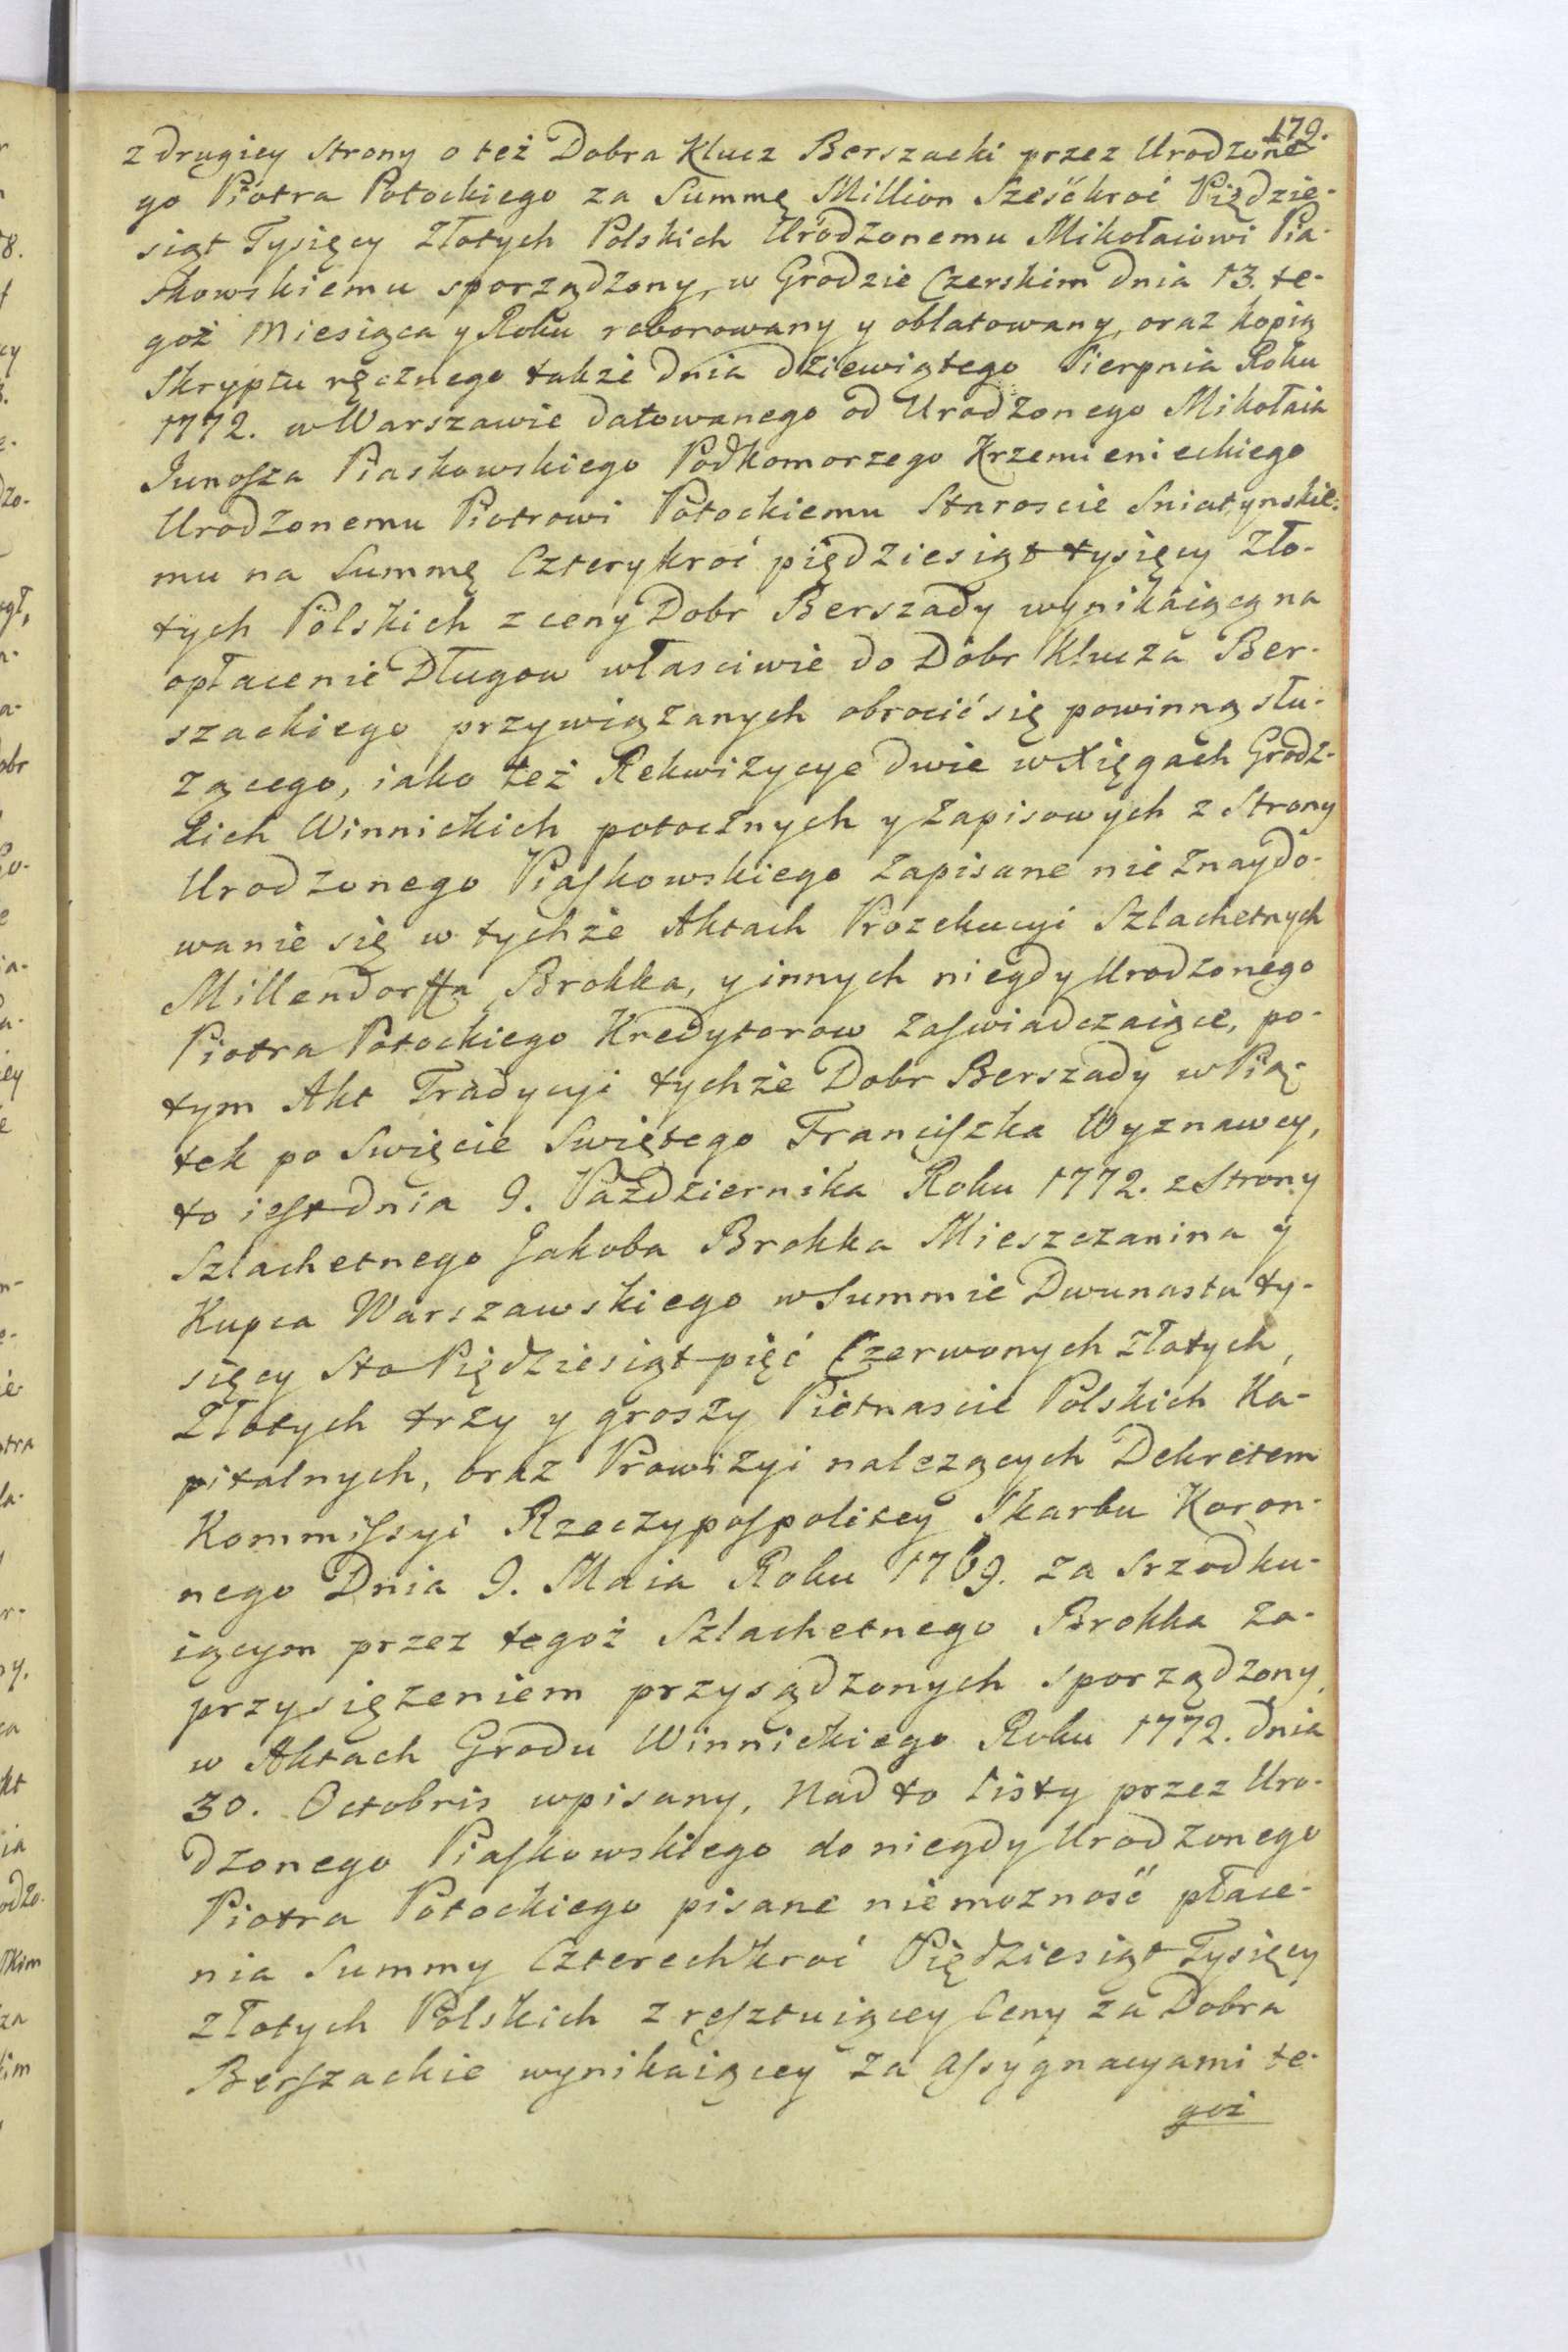 179.
z drugiey Strony o też Dobra Klucz Berszacki przez Urodzone-
go Piotra Potockiego za Summę Million Sześćkroć Pięдzie-
siąt Tysięcy Złotych Polskich Urodzonemu Mikołaiowi Pia-
skowskiemu sporządzony, w Grodzie Czerskim dnia 13. te-
goż Miesiąca y Roku roborowany y oblatowany, oraz kopią
Skryptu ręcznego także dnia dziewiątego Sierpnia Roku
1772. w Warszawie datowanego od Urodzonego Mikołaia
Junosza Piaskowskiego Podkomorzego Krzemienieckiego
Urodzonemu Piotrowi Potockiemu Staroscie Sniatynskie-
mu na Summę Czterykroć piędziesiąt tysięcy Zło-
tych Polskich z ceny Dobr Berszady wynikaiącą na
opłacenie Długow własciwie do Dobr Klucza Ber-
szackiego przywiązanych obrocić się powinną słu-
zącego, iako też Rekwizycye dwie w Xięgach Grodz-
kich Winnickich potocznych y Zapisowych z Strony
Urodzonego Piaskowskiego Zapisane nie Znaydo-
wanie się w tychże Aktach Prozekucyi Szlachetnych
Millendorffa Brokka, y innych niegdy Urodzonego
Piotra Potockiego Kredytorow Zaswiadczaiące, po-
tym Akt Tradycyi tychże Dobr Berszady w Pią-
tek po Swięcie Swiętego Franciszka Wyznawcy,
to iest dnia 9. Pazdziernika Roku 1772. z Strony
Szlachetnego Jakoba Brokka Mieszczanina y
Kupca Warszawskiego w Summie Dwunastu ty-
sięcy Sto Pięдziesiąt pięć Czerwonych złotych,
Złotych trzy y groszy Pietnascie Polskich Ka-
pitalnych, oraz Prowizyi nalezących Dekretem
Kommissyi Rzeczypospolitey Skarbu Koron-
nego Dnia 9. Maia Roku 1769. za Srzodku-
iącym przez tegoż Szlachetnego Brokka Za-
przysiężeniem przysądzonych sporządzony,
w Aktach Grodu Winnickiego Roku 1772. dnia
30. Octobris wpisany, Nad to Listy przez Uro-
dzonego Piaskowskiego do niegdy Urodzonego
Piotra Potockiego pisane niemozność płace-
nia Summy Czterechkroć Pięдziesiąt Tysięcy
Złotych Polskich z resztuiącey Ceny za Dobra
Berszackie wynikaiącey za Assygnacyami te-
goż